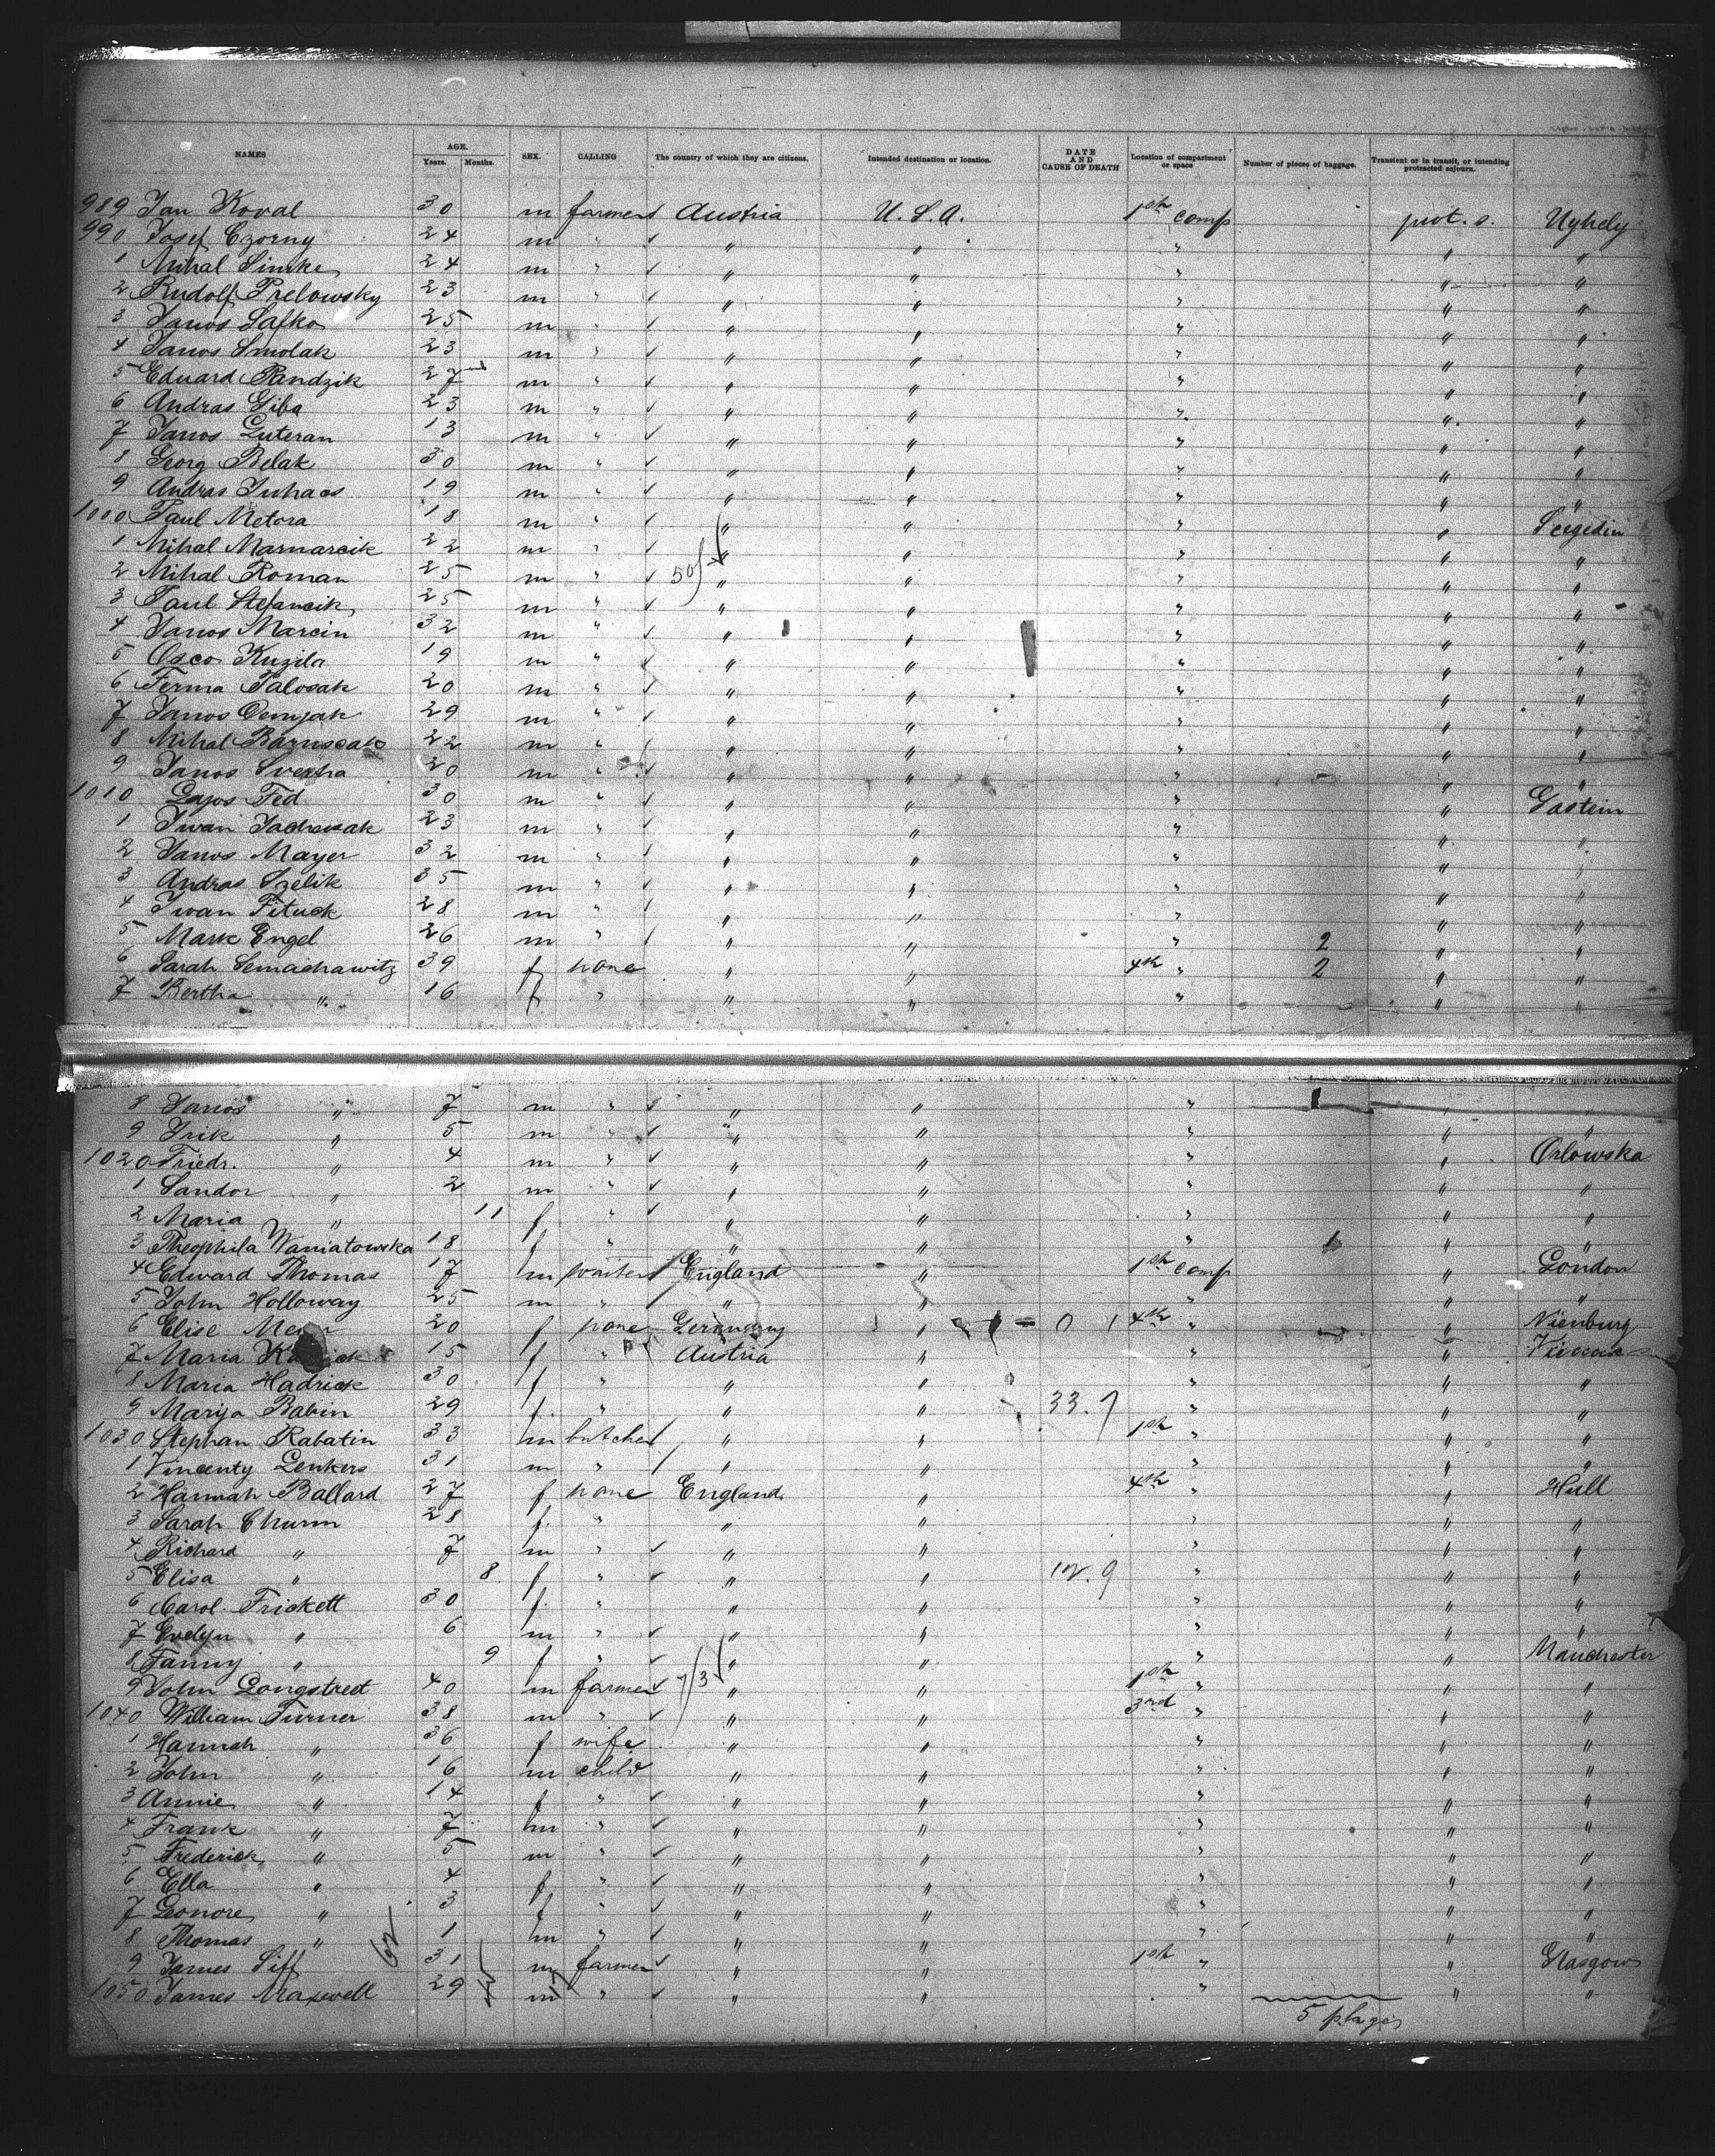 NAMES AGE. Years. Months. SEX. CALLING The country of which they are citizens. Intended destination or location. DATE AND CAUSE OF DEATH Location of compartment or space Number of pieces of baggage. Transient or in transit, or intending protracted sojourn.
989 Jan Koval 30 m farmer Austria U. S. A. 1st comp prot. s. Uyhely
990 Josef Czorny 24 m " " " " " "
1 Mihal Simke 24 m " " " " " "
2 Rudolf Prelowsky 23 m " " " " " "
3 Janos Safko 25 m " " " " " "
4 Janos Smolak 23 m " " " " " "
5 Eduard Pandzik 27 m " " " " " "
6 Andras Giba 23 m " " " " " "
7 Janos Luteran 13 m " " " " " "
8 Georg Belak 30 m " " " " " "
9 Andras Juhacs 19 m " " " " " "
1000 Paul Metora 18 m " " " " " Segedin
1 Mihal Marnarcik 22 m " " " " " "
2 Mihal Roman 25 m " 50 " " " " "
3 Paul Stefancik 25 m " " " " " "
4 Janos Marcin 32 m " " " " " "
5 Osco Kuzila 19 m " " " " " "
6 Ferma Palosak 20 m " " " " " "
7 Janos Demjak 29 m " " " " " "
8 Mihal Barnscak 22 m " " " " " "
9 Janos Sverha 20 m " " " " " "
1010 Lajos Fed 30 m " " " " " Gastein
1 Iwan 23 m " " " " " "
2 Janos Mayer 32 m " " " " " "
3 Andras Szelik 35 m " " " " " "
4 Iwan Fituck 28 m " " " " " "
5 Mark Engel 26 m " " " " 2 " "
6 Sarah Semachawitz 39 f none " " 4th " 2 " "
7 Bertha " 16 f " " " " " "
8 Janos " 7 m " " " " 1 " "
9 Irik " 5 m " " " " " "
1020 Friedr. " 4 m " " " " " Orlowska
1 Sandor " 2 m " " " " " "
2 Maria " 11 f " " " " " "
3 Theophila Waniatowska 18 f " " " " 1 " "
4 Edward Thomas 17 m waiter England " 1st comp " London
5 John Holloway 25 m " " " " " "
6 Elise 20 f none Germany " 4th " " Nienburg
7 Maria 15 f " Austria " " " Vienna
8 Maria Hadrick 30 f " " " " " "
9 Marija Babin 29 f " " " 33.7 " " "
1030 Stephan Rabatin 33 m butcher " " 1st " " "
1 Vincenty Lenkers 31 m " " " " " "
2 Hannah Ballard 27 f none England " 4th " " Hull
3 Sarah Churm 28 f " " " " " "
4 Richard " 7 m " " " " " "
5 Elisa " 8 f " " " 12.9 " " "
6 Carol. Frickett 30 f " " " " " "
7 Evelyn " 6 m " " " " " "
8 Fanny " 9 f " " " " " Manchester
9 John Longstreet 40 m farmer " " 1st " " "
1040 William Turner 38 m " " " 3rd " " "
1 Hannah " 36 f wife " " " " "
2 John " 16 m child " " " " "
3 Annie " 14 f " " " " " "
4 Frank " 7 m " " " " " "
5 Frederick " 5 m " " " " " "
6 Ella " 4 f " " " " " "
7 Leonore " 3 f " " " " " "
8 Thomas " 1 m " " " " " "
62
9 James Siff 31 m farmer " " 1st " " Glasgow
1050 James Maxwell 29 m " " " " " "
5 pkges